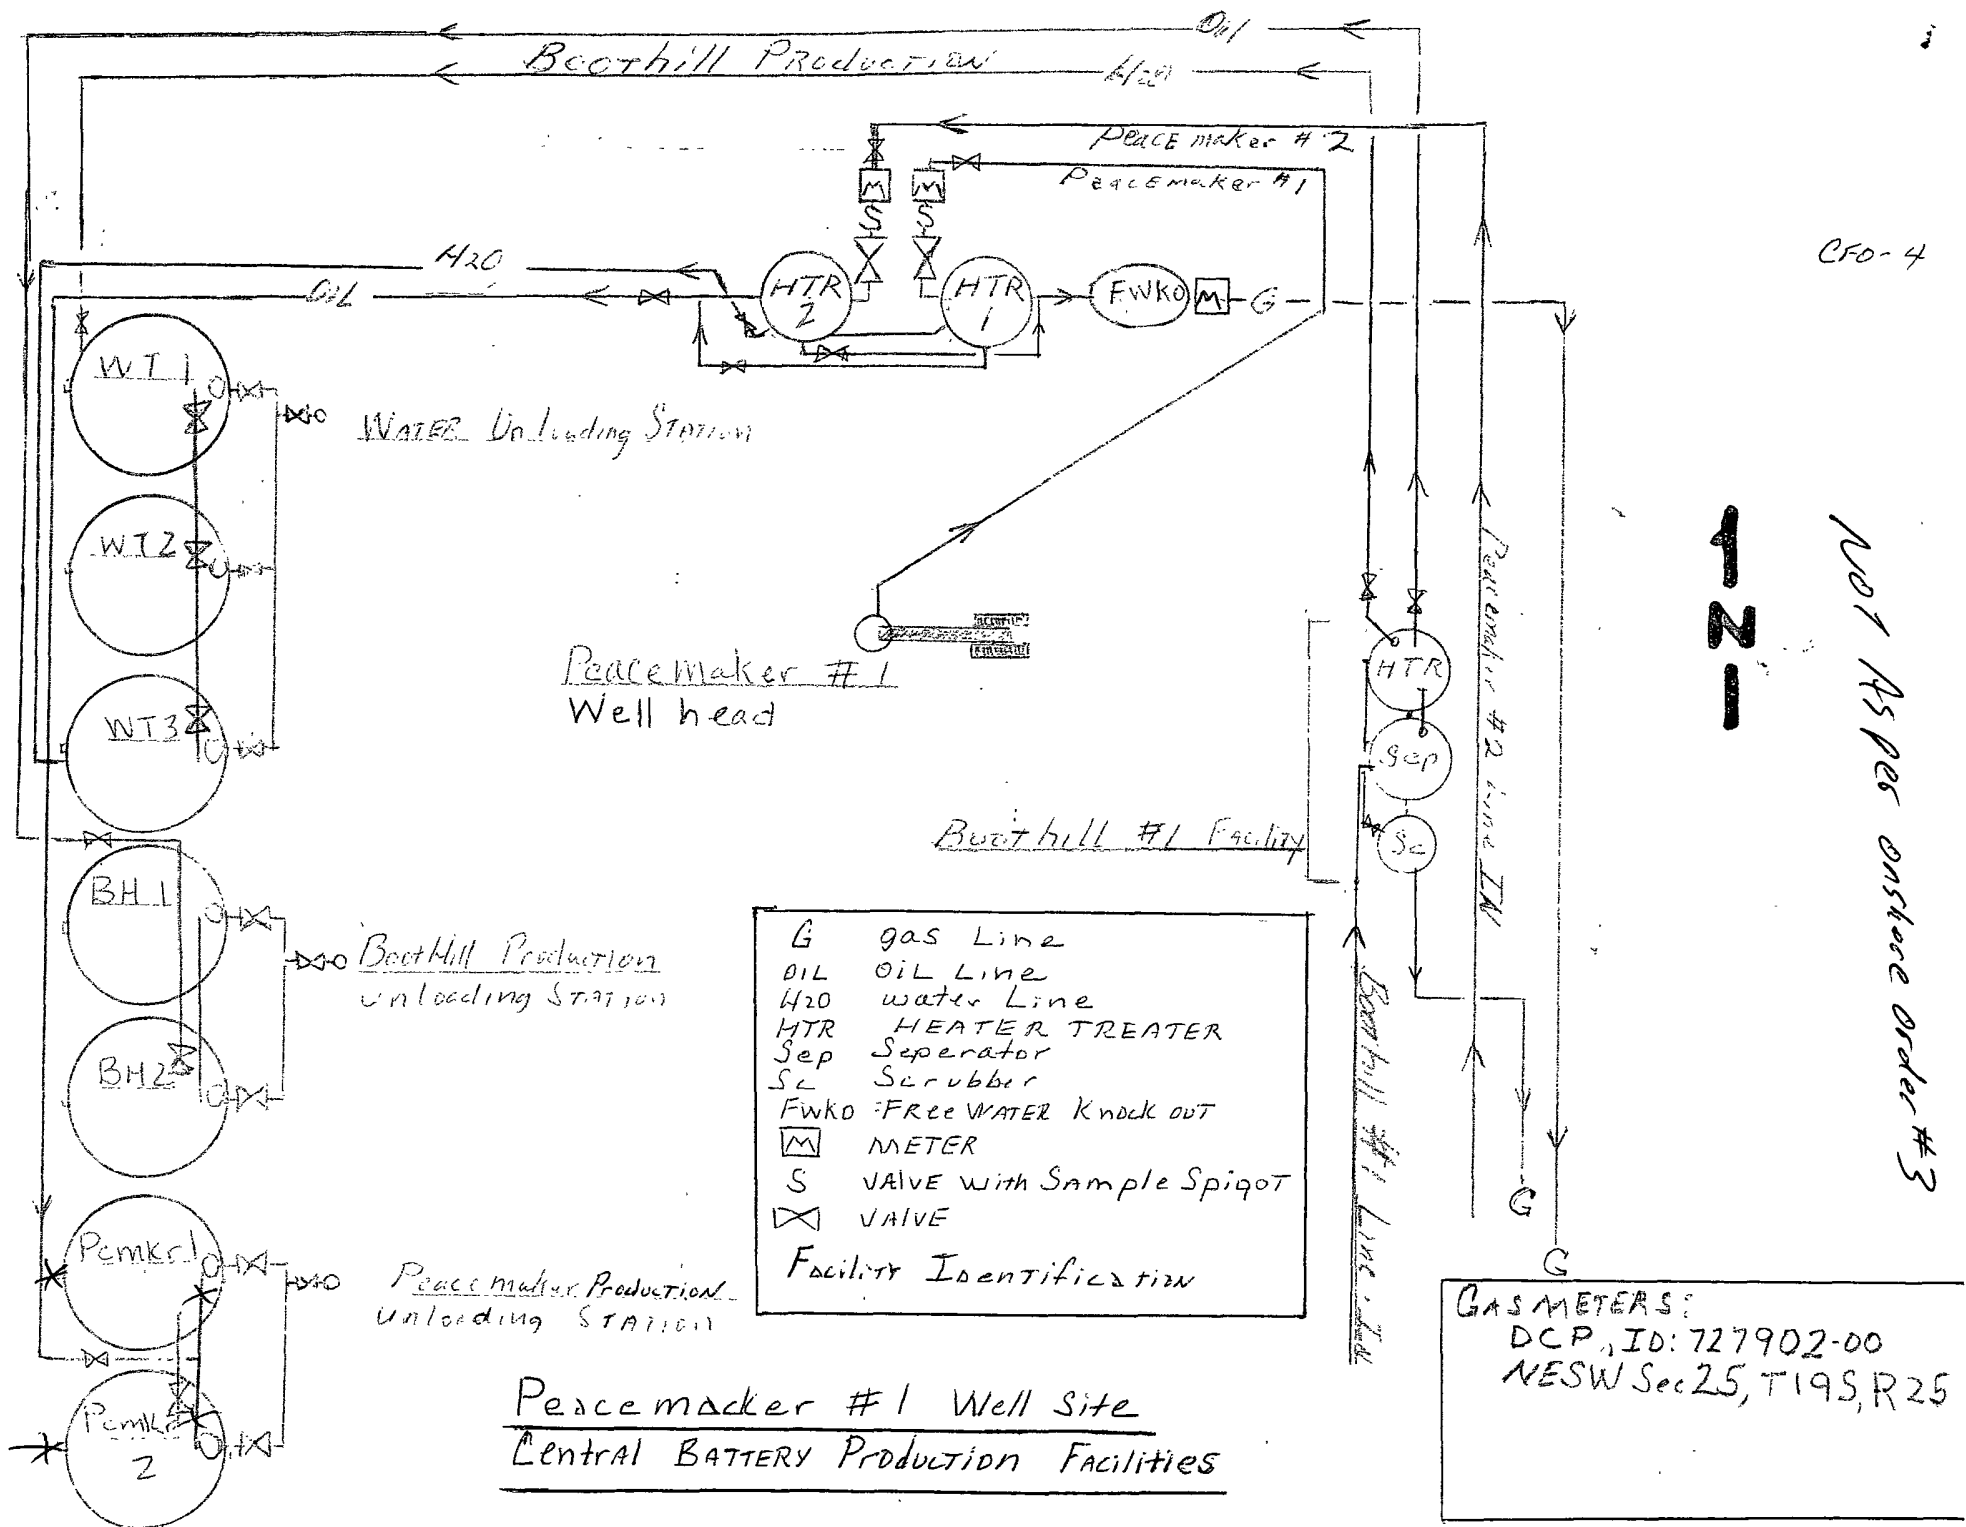 Oil
Boothill Production
H20
Peace maker #2
Peacemaker #1
M
M
S
S
CFO-4
H20
OIL
HTR
2
HTR
1
FWKO
M
G
WT 1
Water Unloading Station
WT2
WT3
Peacemaker #1
Well head
HTR
Sep
Sc
Boothill #1 Facility
Peacemaker #2 Line IN
Boothill #1 Line In
N
Not As per onshore order #3
BH 1
BH2
BootHill Production
Unloading Station
G gas Line
OIL OiL Line
H20 water Line
HTR HEATER TREATER
Sep Seperator
Sc Scrubber
FWKO FRee WATER Knock OUT
M METER
S VALVE with Sample Spigot
VALVE
Facility Identification
Pcmkr 1
Pcmkr
2
Peacemaker Production
Unloading Station
G
G
GAS METERS:
DCP, ID: 727902-00
NESW Sec 25, T19S, R25
Peacemacker #1 Well Site
Central BATTERY Production Facilities